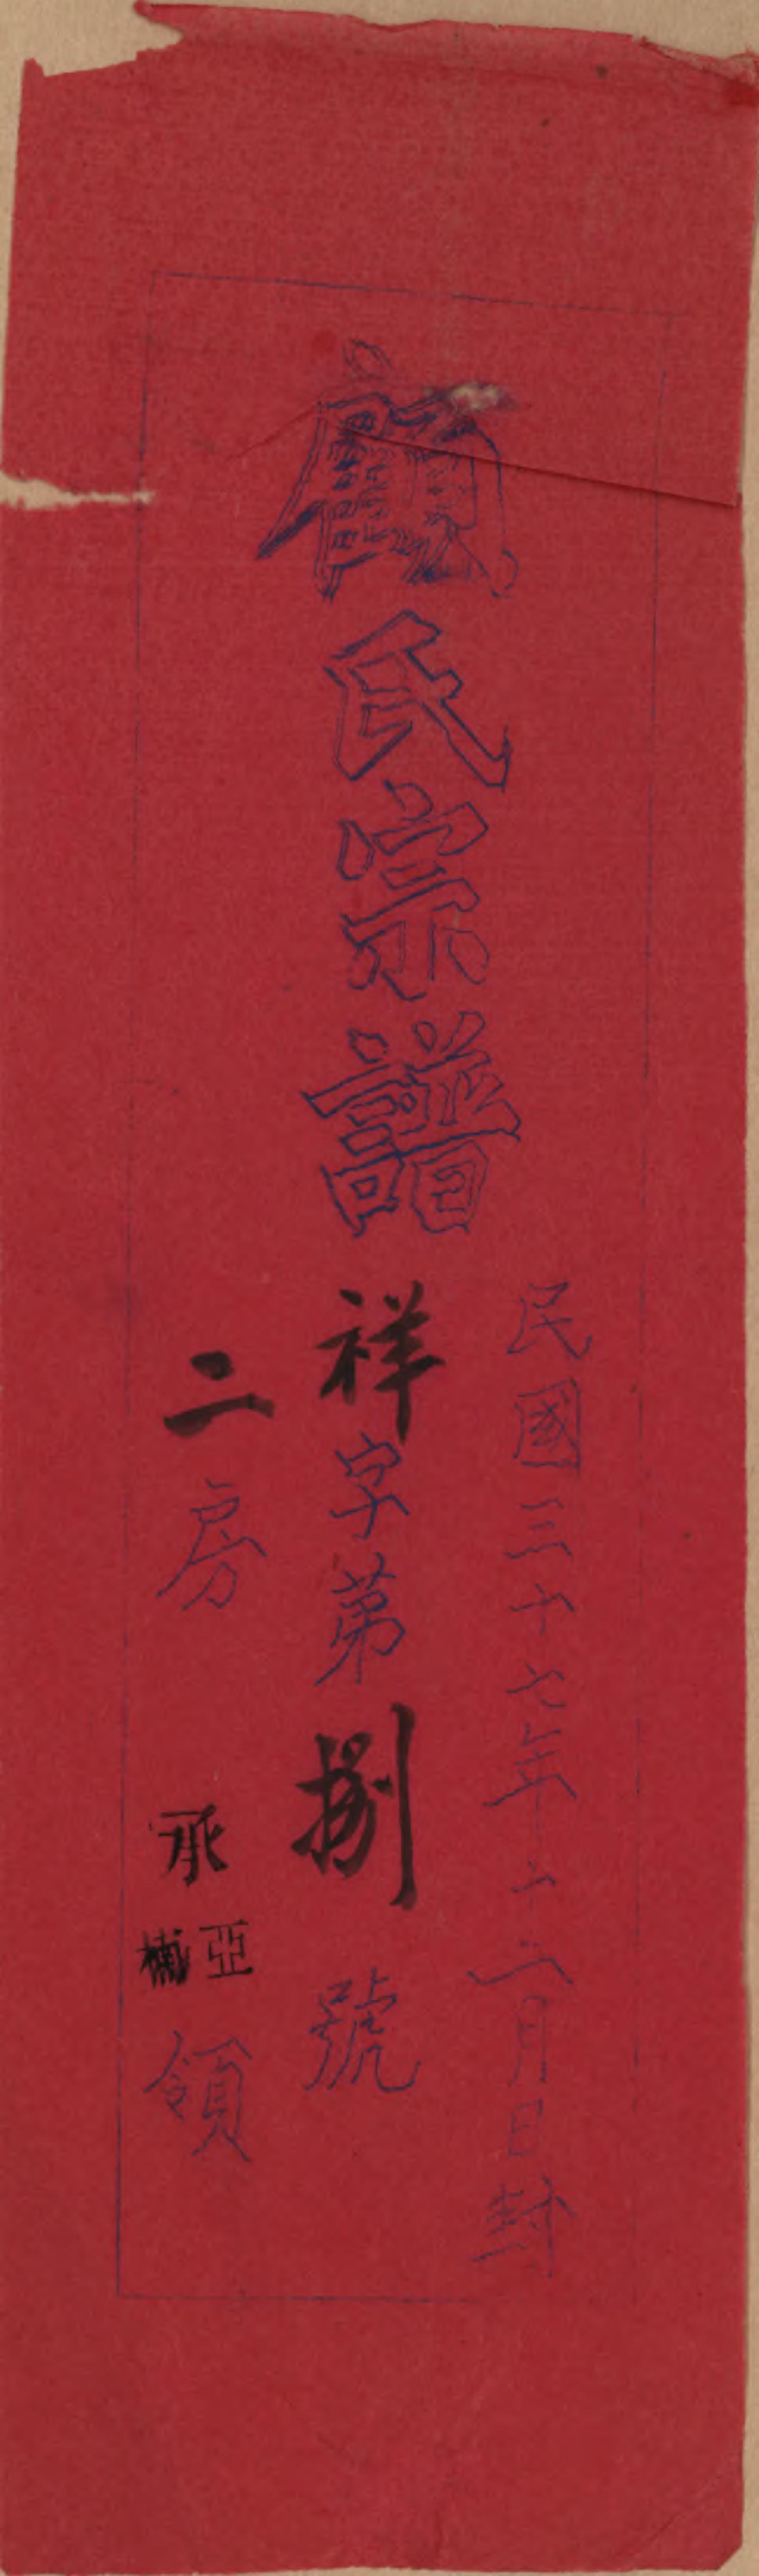 顧氏宗譜
民國三十七年十二月日封
祥字苐捌號
二房 承亞楠領